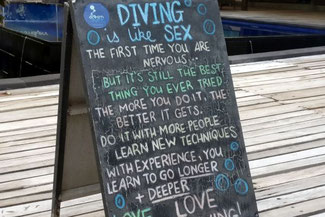 DIVING
is Like SEX
THE FIRST TIME YOU ARE
NERVOUS...
BUT IT'S STILL THE BEST
THING YOU EVER TRIED
THE MORE YOU DO IT, THE
BETTER IT GETS.
DO IT WITH MORE PEOPLE
LEARN NEW TECHNIQUES
WITH EXPERIENCE, YOU
LEARN TO GO LONGER
+ DEEPER
LOVE LOVE